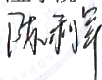 陈利军